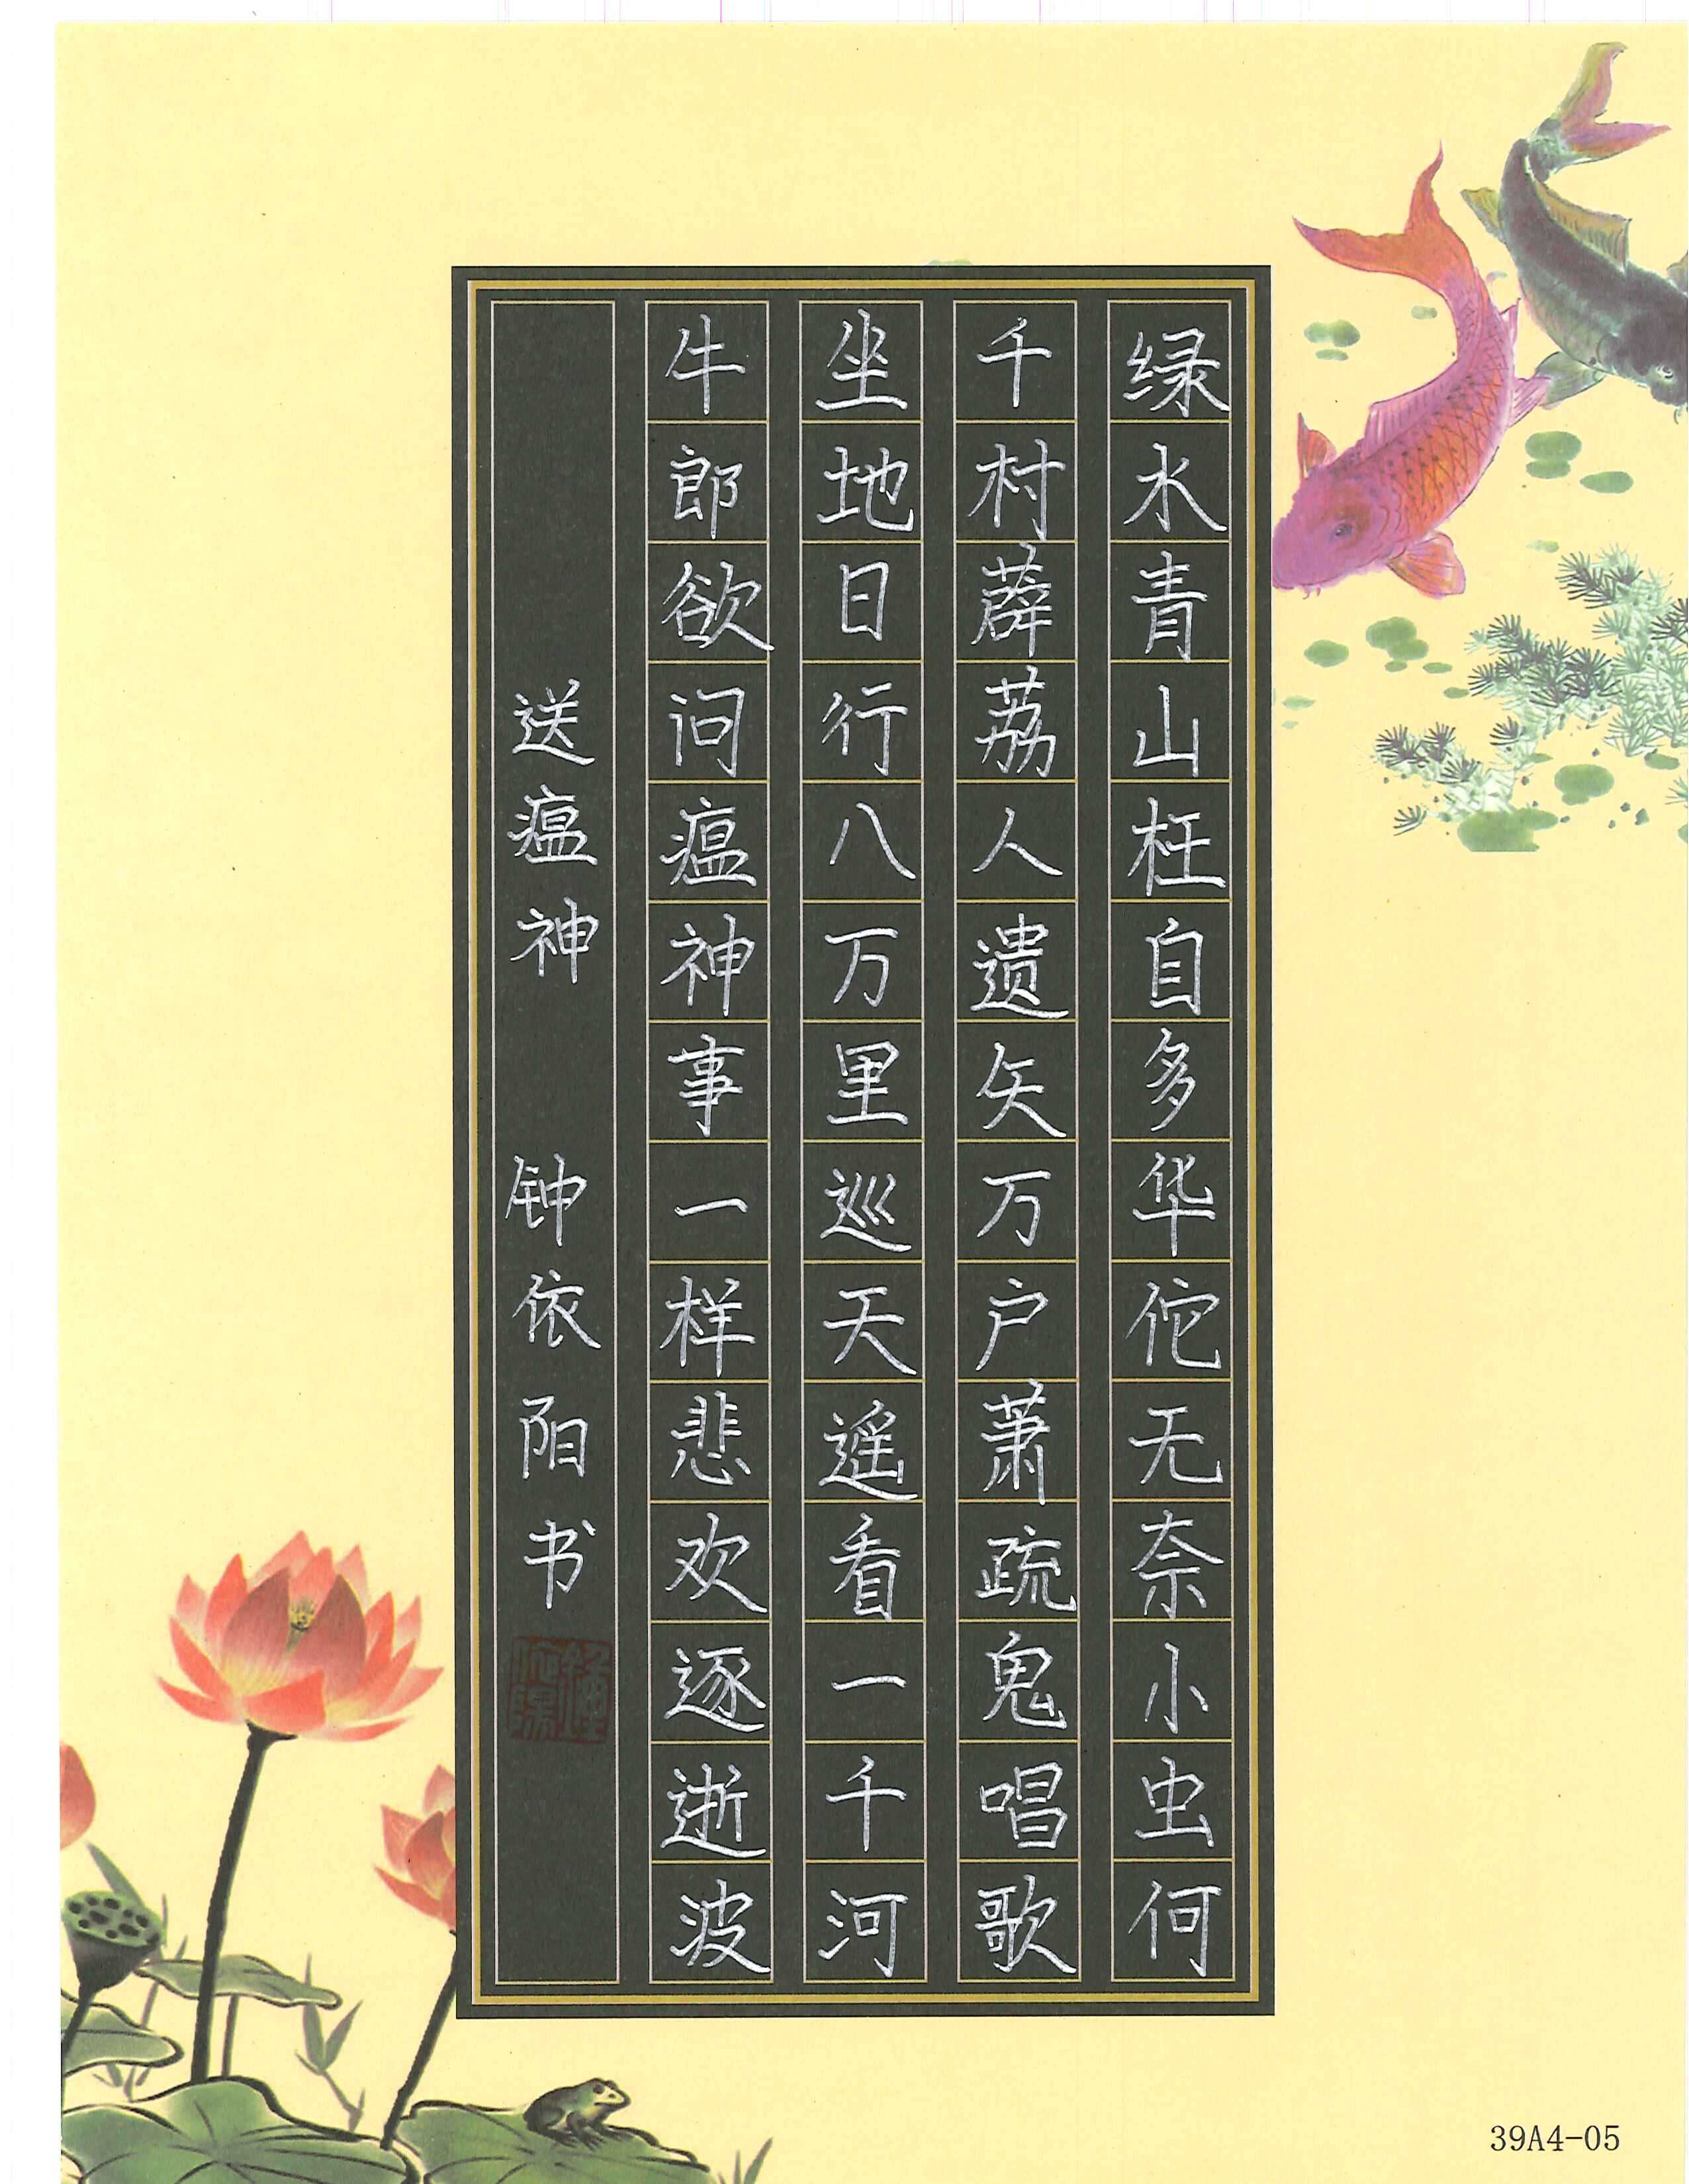 绿水青山枉自多华佗无奈小虫何
千村薜荔人遗矢万户萧疏鬼唱歌
坐地日行八万里巡天遥看一千河
牛郎欲问瘟神事一样悲欢逐逝波
送瘟神 钟依阳书
39A4-05